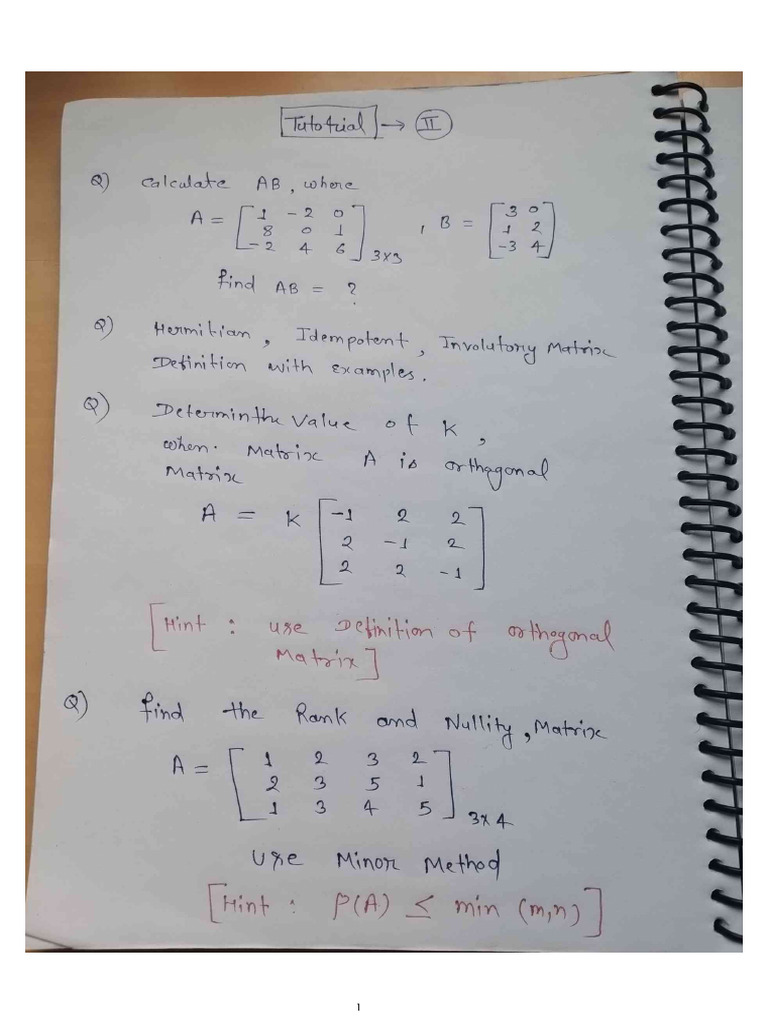 Tutotrial → II
Q) Calculate AB, where
A = [ 1 -2 0
8 0 1
-2 4 6 ] 3x3 , B = [ 3 0
1 2
-3 4 ]
find AB = ?
Q) Hermitian, Idempotent, Involutory Matrix
Definition with examples.
Q) Determinthe Value of K,
when. Matrix A is orthagonal
Matrix
A = K [ -1 2 2
2 -1 2
2 2 -1 ]
[Hint : use Definition of orthagonal
Matrix]
Q) find the Rank and Nullity, Matrix
A = [ 1 2 3 2
2 3 5 1
1 3 4 5 ] 3x4
use Minor Method
[Hint : ρ(A) ≤ min (m,n)]
1